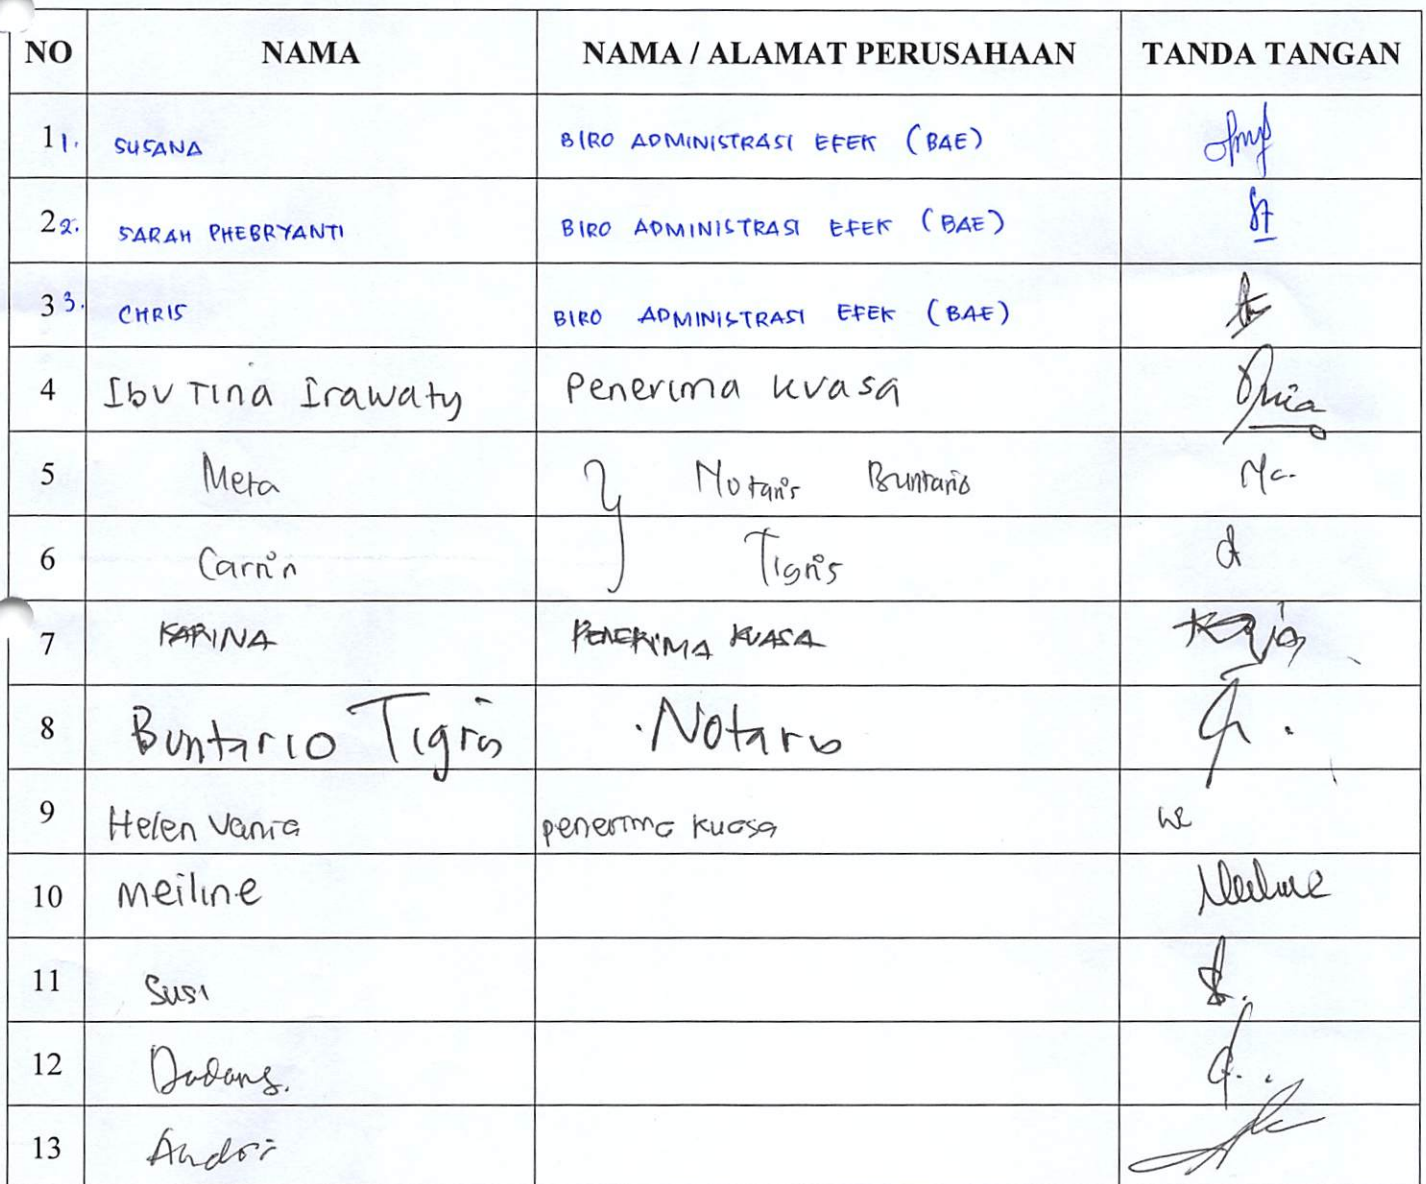 NO NAMA NAMA / ALAMAT PERUSAHAAN TANDA TANGAN
1 1. SUSANA BIRO ADMINISTRASI EFEK (BAE)
2 2. SARAH PHEBRYANTI BIRO ADMINISTRASI EFEK (BAE)
3 3. CHRIS BIRO ADMINISTRASI EFEK (BAE)
4 Ibu Tina Irawaty Penerima kuasa
5 Meta Notaris Buntario
6 Carrin Tigris
7 KARINA PENERIMA KUASA
8 Buntario Tigris Notaris
9 Helen Vania penerima kuasa
10 Meiline Meiline
11 Susi
12 Dadang.
13 Andri